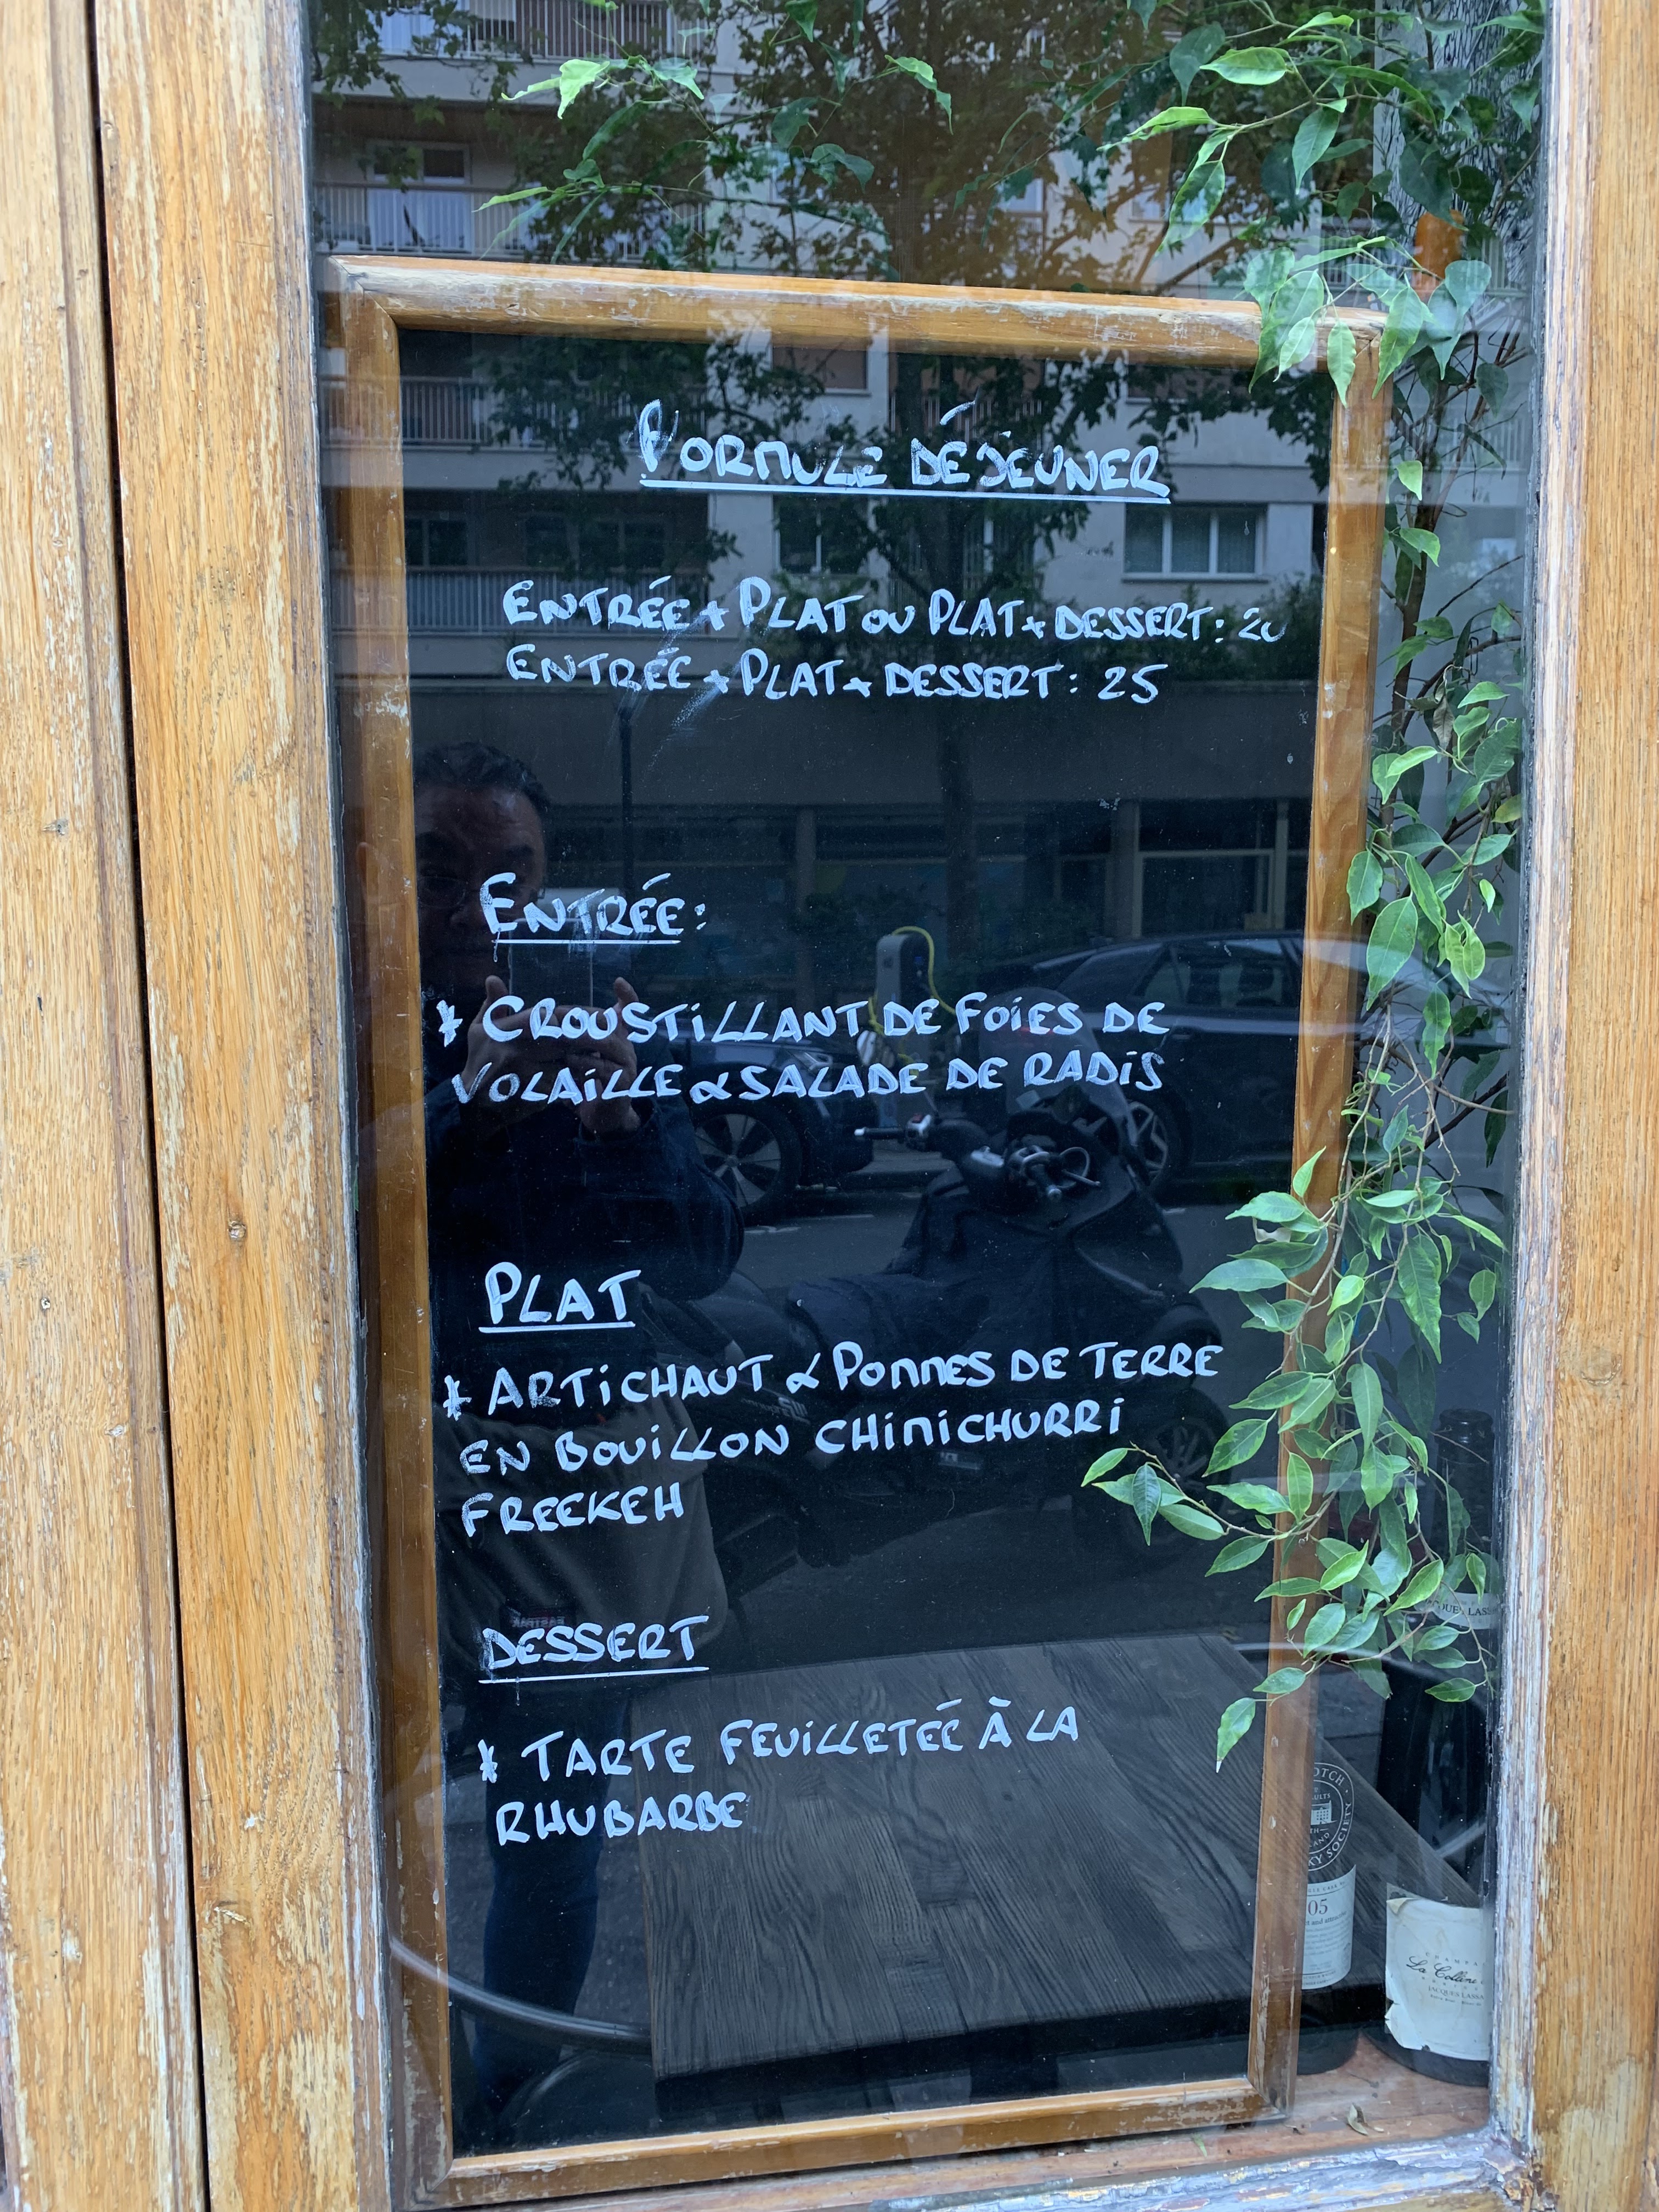 FORMULE DÉJEUNER
ENTRÉE + PLAT OU PLAT + DESSERT : 20
ENTRÉE + PLAT + DESSERT : 25
ENTRÉE :
* CROUSTILLANT DE FOIES DE
VOLAILLE & SALADE DE RADIS
PLAT
* ARTICHAUT & POMMES DE TERRE
EN BOUILLON CHIMICHURRI
FREEKEH
DESSERT
* TARTE FEUILLETÉE À LA
RHUBARBE
05
La Colline
JACQUES LASSA